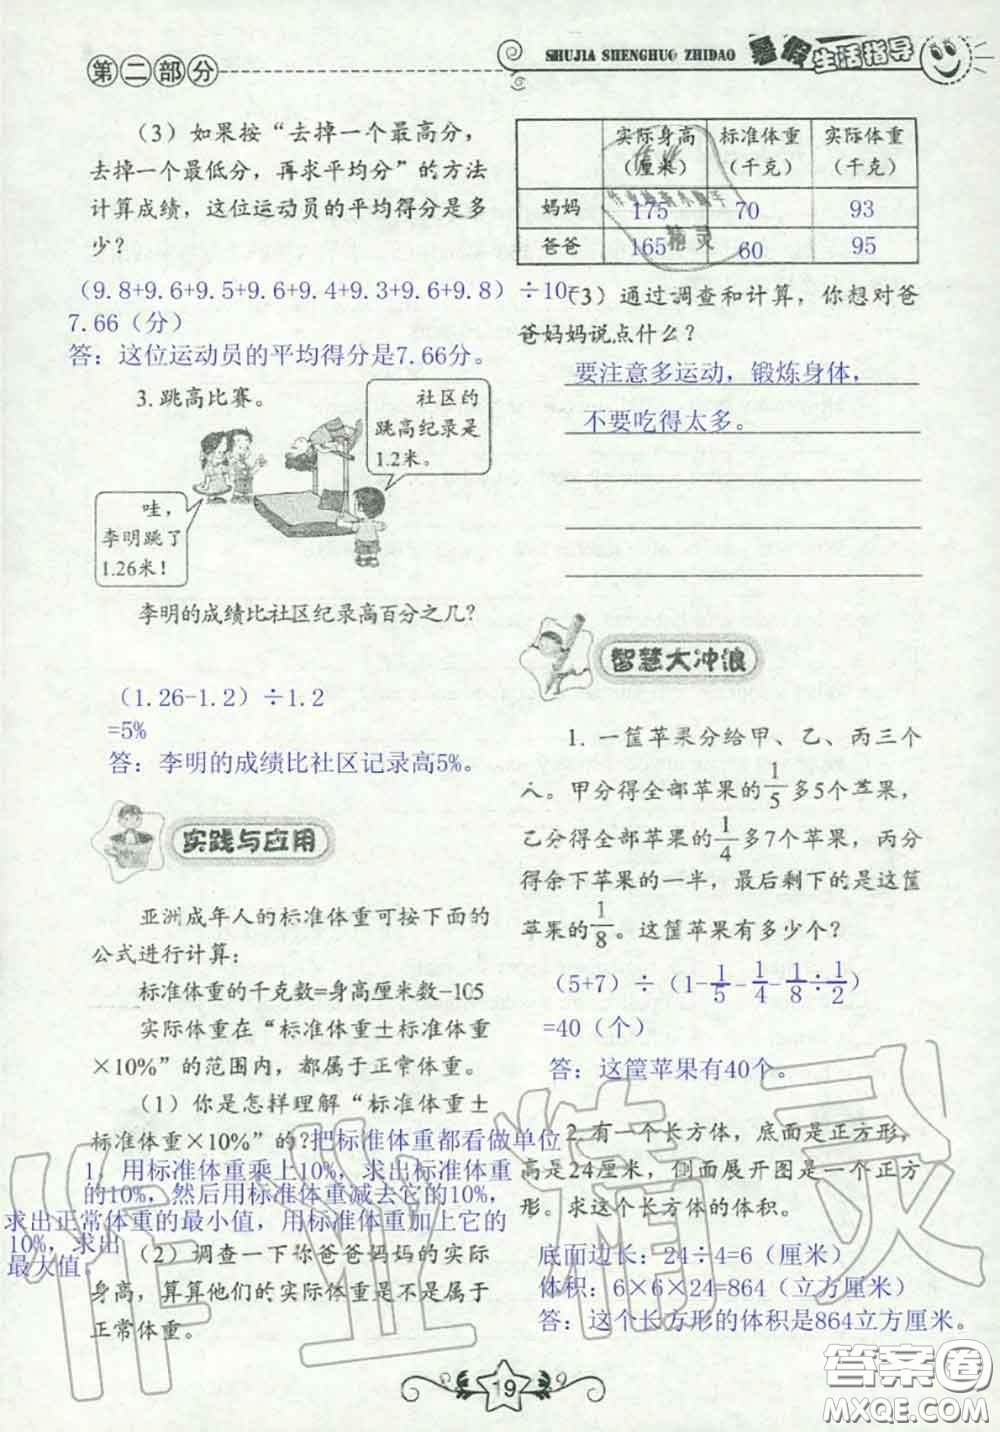 第二部分
SHUJIA SHENGHUO ZHIDAO 暑假生活指导
(3) 如果按“去掉一个最高分，
去掉一个最低分，再求平均分”的方法
计算成绩，这位运动员的平均得分是多
少？
（9.8+9.6+9.5+9.6+9.4+9.3+9.6+9.8）÷10
7.66（分）
答：这位运动员的平均得分是7.66分。
3. 跳高比赛。
社区的
跳高纪录是
1.2米。
哇，
李明跳了
1.26米！
李明的成绩比社区纪录高百分之几？
（1.26-1.2）÷1.2
=5%
答：李明的成绩比社区记录高5%。
实践与应用
亚洲成年人的标准体重可按下面的
公式进行计算：
标准体重的千克数=身高厘米数-105
实际体重在“标准体重±标准体重
×10%”的范围内，都属于正常体重。
(1) 你是怎样理解“标准体重±
标准体重×10%”的？把标准体重都看做单位
1，用标准体重乘上10%，求出标准体重
的10%，然后用标准体重减去它的10%，
求出正常体重的最小值，用标准体重加上它的
10%，求出
最大值
(2) 调查一下你爸爸妈妈的实际
身高，算算他们的实际体重是不是属于
正常体重。
实际身高（厘米） 标准体重（千克） 实际体重（千克）
妈妈 175 70 93
爸爸 165 60 95
(3) 通过调查和计算，你想对爸
爸妈妈说点什么？
要注意多运动，锻炼身体，
不要吃得太多。
智慧大冲浪
1. 一筐苹果分给甲、乙、丙三个
人。甲分得全部苹果的1/5多5个苹果，
乙分得全部苹果的1/4多7个苹果，丙分
得余下苹果的一半，最后剩下的是这筐
苹果的1/8。这筐苹果有多少个？
（5+7）÷（1-1/5-1/4-1/8÷1/2）
=40（个）
答：这筐苹果有40个。
2. 有一个长方体，底面是正方形，
高是24厘米，侧面展开图是一个正方
形。求这个长方体的体积。
底面边长：24÷4=6（厘米）
体积：6×6×24=864（立方厘米）
答：这个长方形的体积是864立方厘米。
19
作业精灵
答案圈
MXQE.COM